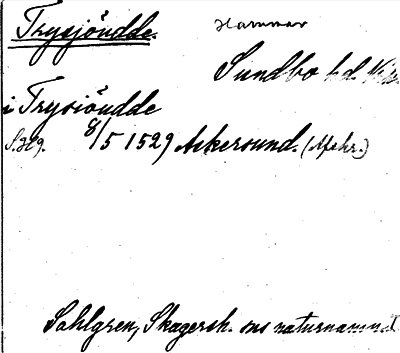 Trysjöudde. Hammar
Sundbo hd.
i Trysiöudde
8/5 1529 Askersund. (Afskr.)
Sahlgren, Skagersh. sns naturnamn